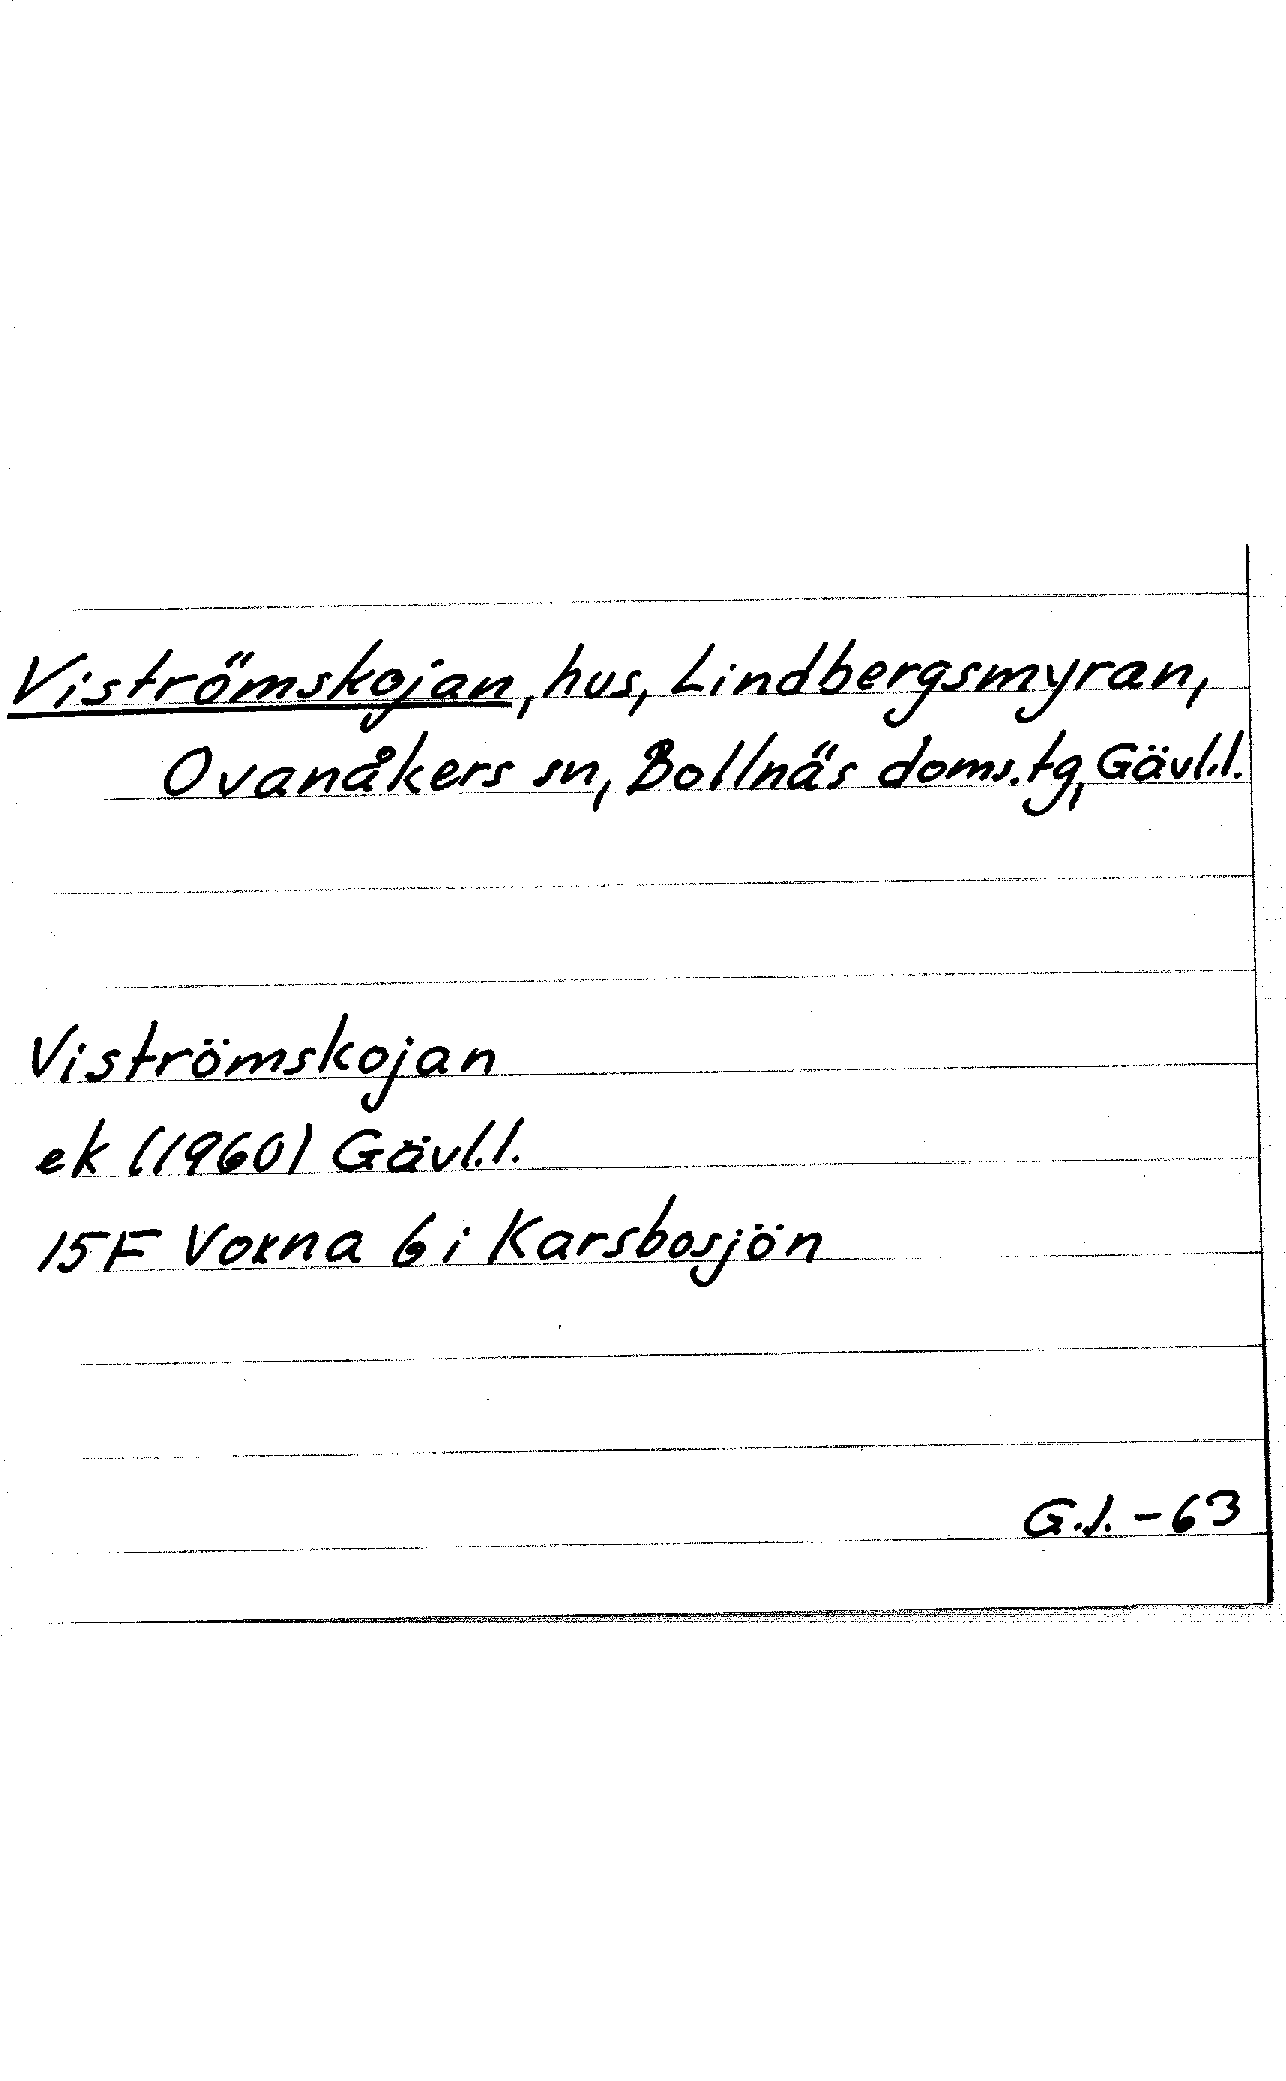 Viströmskojan, hus, Lindbergsmyran,
Ovanåkers sn, Bollnäs doms.tg, Gävl.l.
Viströmskojan
ek (1960) Gävl.l.
15F Voxna 6 i Karsbosjön
G.J. -63